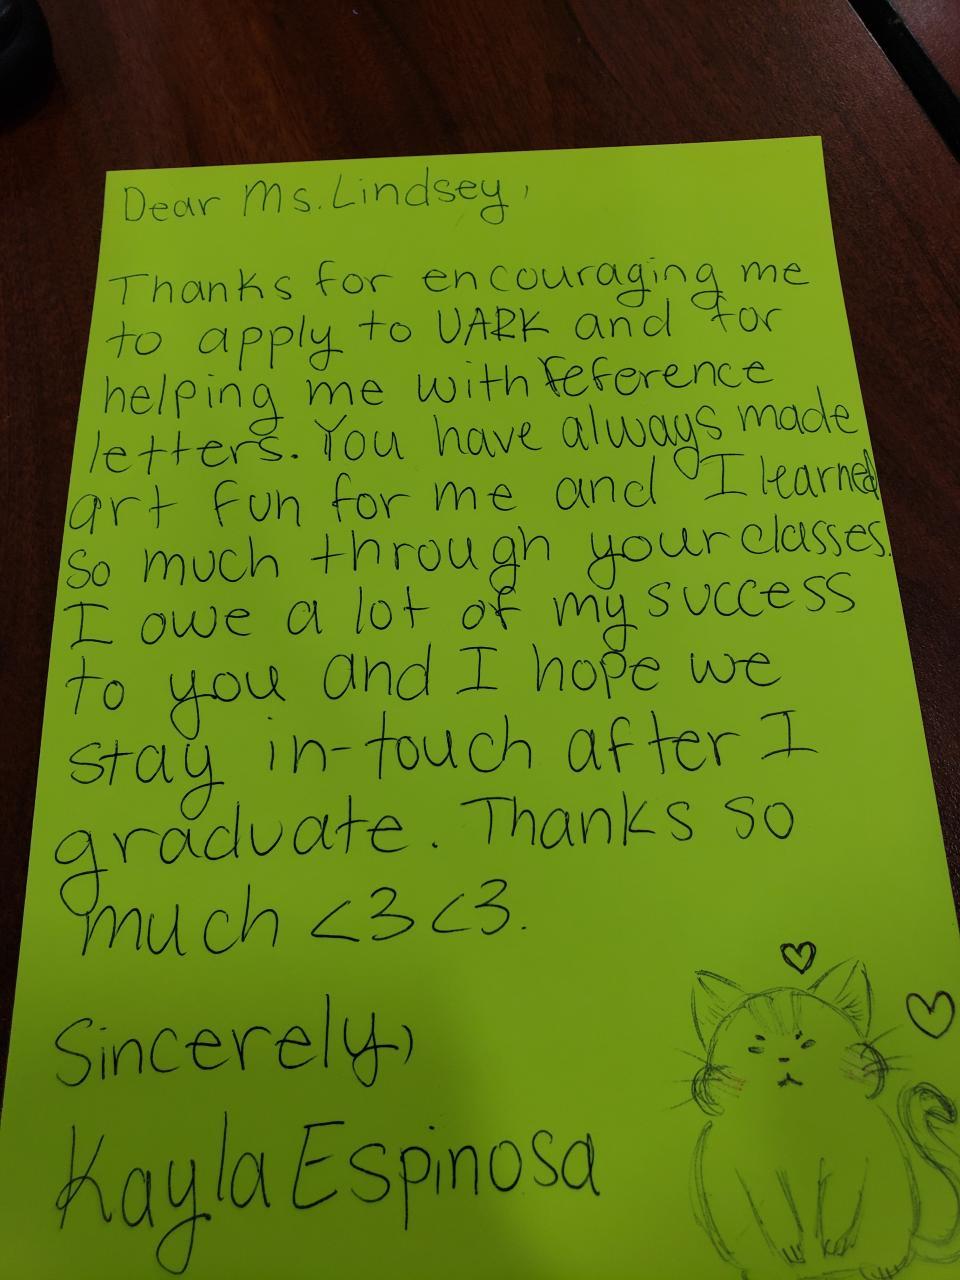 Dear Ms. Lindsey,
Thanks for encouraging me
to apply to UARK and for
helping me with reference
letters. You have always made
art fun for me and I learned
so much through your classes.
I owe a lot of my success
to you and I hope we
stay in-touch after I
graduate. Thanks so
much <3 <3.
Sincerely,
Kayla Espinosa